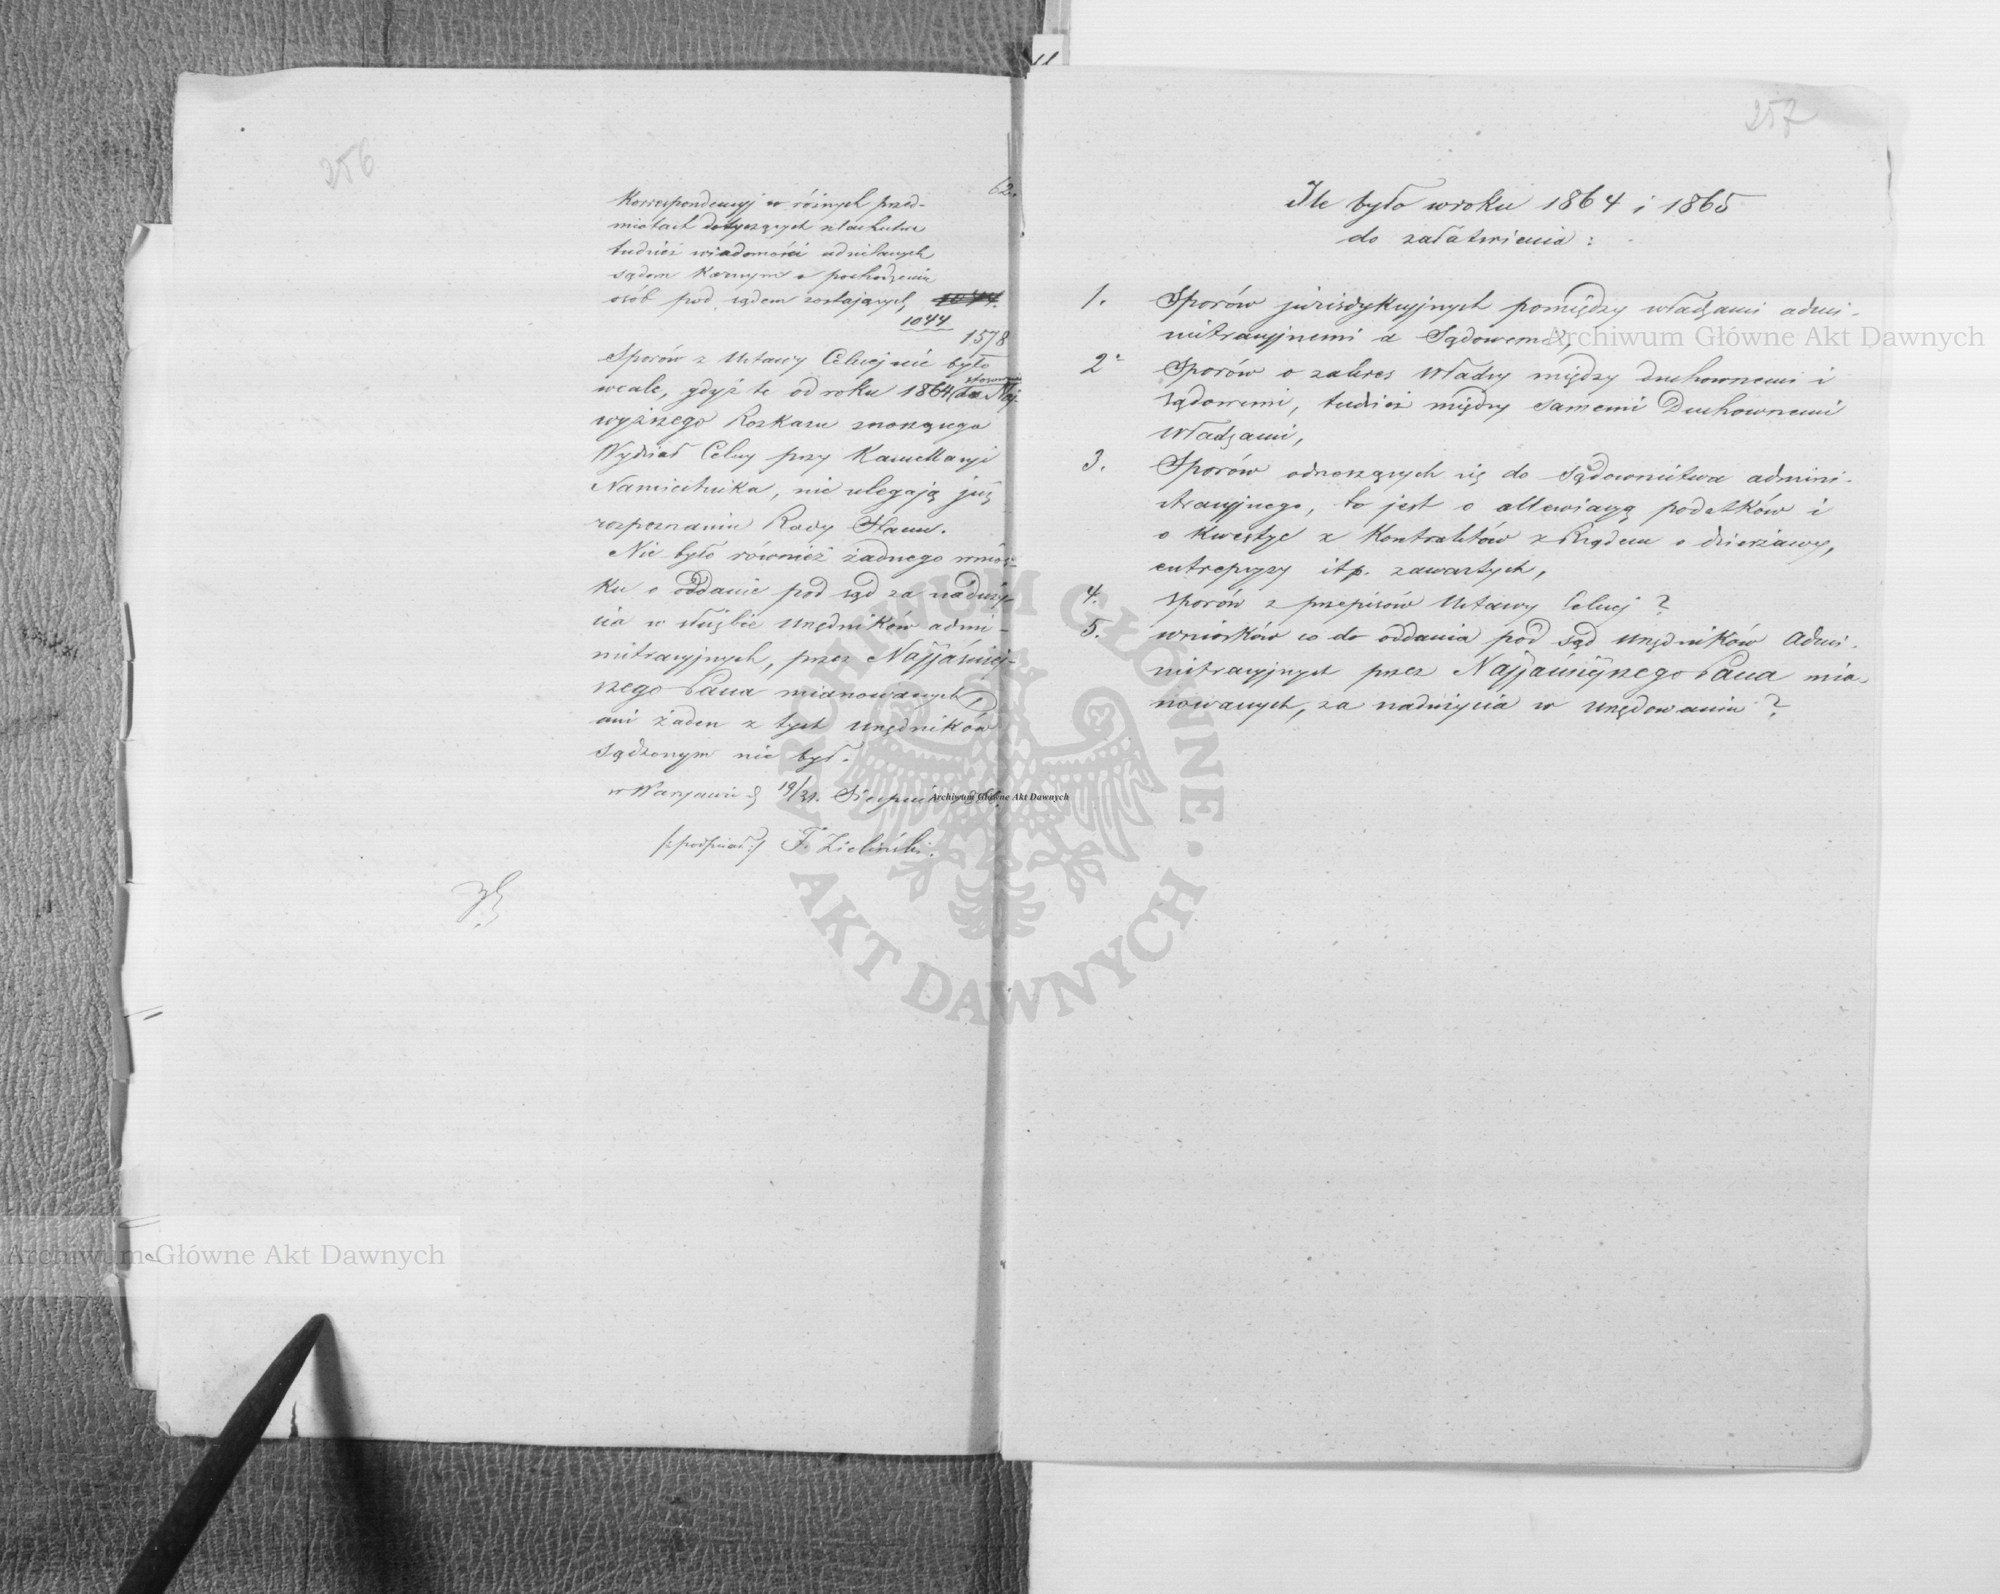 256
62.
Korrespondencyj w różnych przed-
miotach dotyczących szlachectwa
tudzież wiadomości udzielanych
sądom Karnym o pochodzeniu
osób pod sądem zostających,
1044
1578
Sporów z Ustawy Celnej nie było
wcale, gdyż te od roku 1864 stosownie do Naj-
wyższego Rozkazu znoszącego
Wydział Celny przy Kancellaryi
Namiestnika, nie ulegają już
rozpoznaniu Rady Stanu.
Nie było również żadnego wnios-
ku o oddanie pod sąd za naduży-
cia w służbie Urzędników admi-
nistracyjnych, przez Najjaśniej-
szego Pana mianowanych,
ani żaden z tych Urzędników
sądzonym nie był.
w Warszawie d. 19/31. Sierpnia
/:podpisał:/ F. Zieliński.
257
Ile było w roku 1864 i 1865
do załatwienia:
1. Sporów jurisdykcyjnych pomiędzy władzami admi-
nistracyjnemi a Sądowemi,
2. Sporów o zakres Władzy między duchownemi i
sądowemi, tudzież między samemi Duchownemi
Władzami,
3. Sporów odnoszących się do Sądownictwa admini-
stracyjnego, to jest o allewiacyą podatków i
o Kwestye z Kontraktów z Rządem o dzierżawy,
entrepryzy itp. zawartych,
4. Sporów z przepisów Ustawy Celnej?
5. wniosków co do oddania pod sąd Urzędników Admi-
nistracyjnych przez Najjaśniejszego Pana mia-
nowanych, za nadużycia w Urzędowaniu?
Archiwum Główne Akt Dawnych
Archiwum Główne Akt Dawnych
Archiwum Główne Akt Dawnych
ARCHIWUM GŁÓWNE AKT DAWNYCH